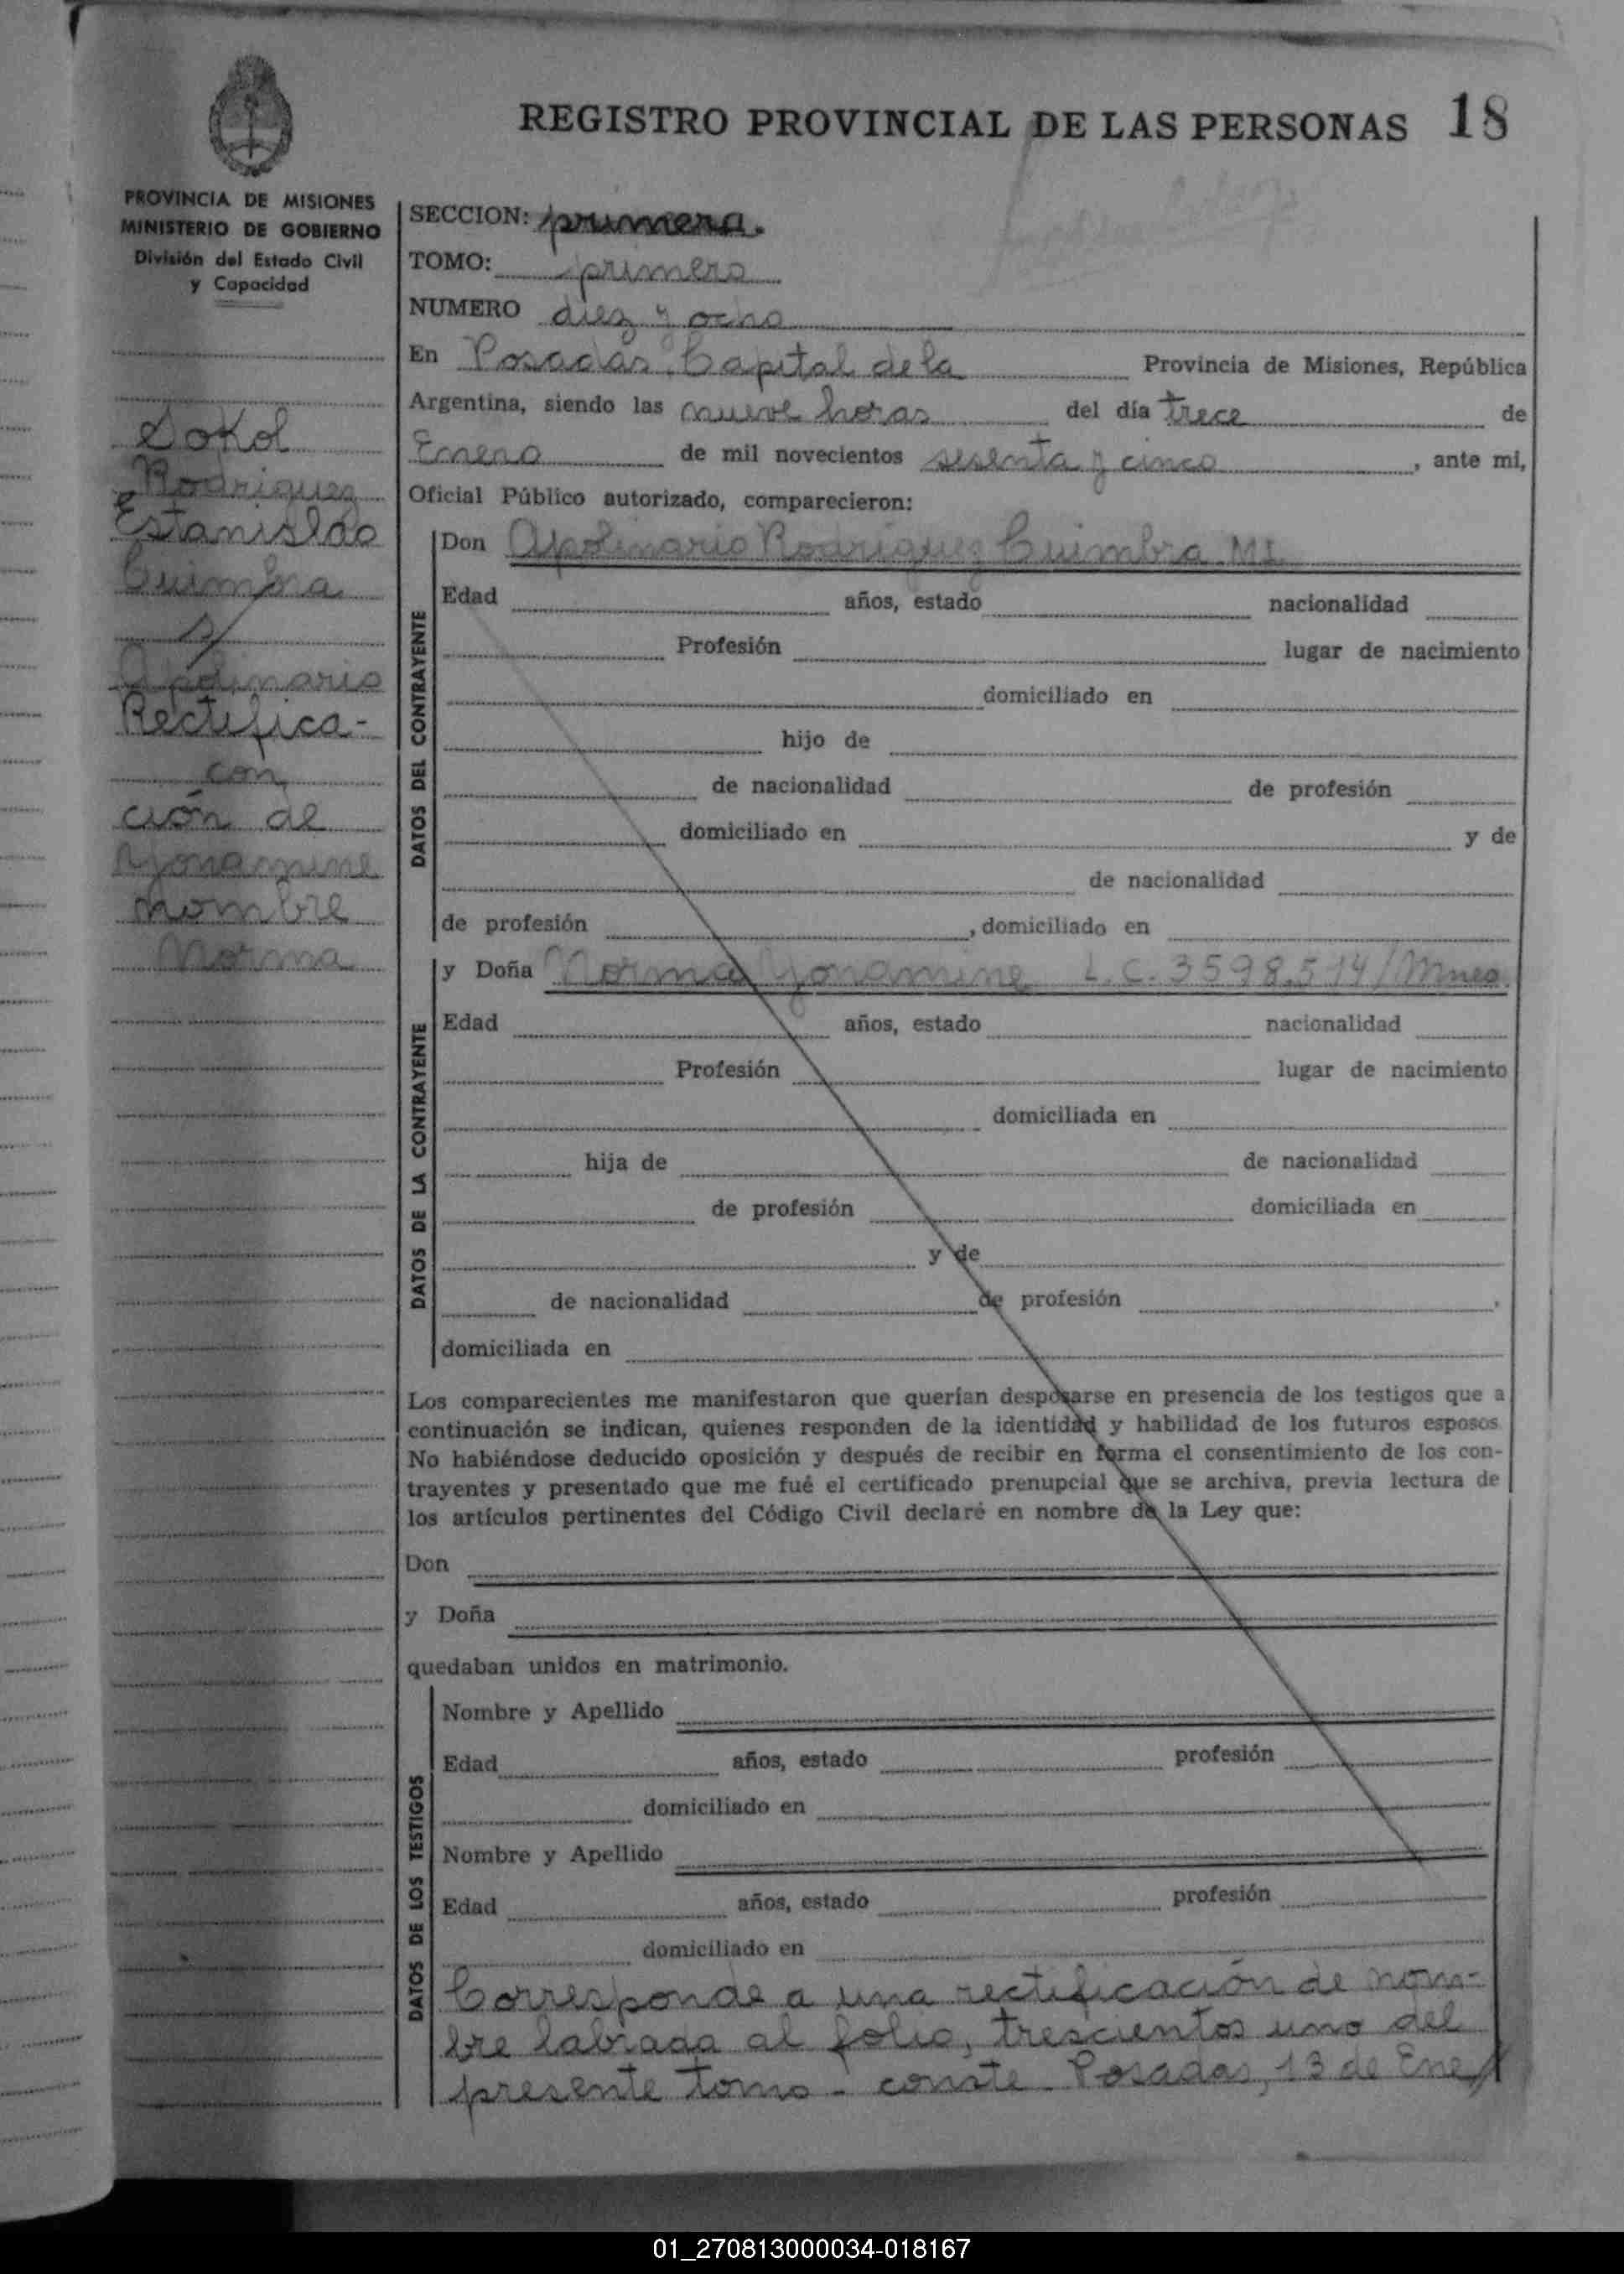 REGISTRO PROVINCIAL DE LAS PERSONAS 18
PROVINCIA DE MISIONES
MINISTERIO DE GOBIERNO
División del Estado Civil
y Capacidad
Sokol
Rodriguez
Estanislao
Cuimbra
y
Apolinario
Rectifica-
con
ción de
Yonamine
nombre
Norma
SECCION: primera.
TOMO: primero
NUMERO diez y ocho
En Posadas, Capital de la Provincia de Misiones, República
Argentina, siendo las nueve horas del día trece de
Enero de mil novecientos sesenta y cinco, ante mi,
Oficial Público autorizado, comparecieron:
DATOS DEL CONTRAYENTE
Don Apolinario Rodriguez Cuimbra M.I.
Edad años, estado nacionalidad
Profesión lugar de nacimiento
domiciliado en
hijo de
de nacionalidad de profesión
domiciliado en y de
de nacionalidad
de profesión , domiciliado en
DATOS DE LA CONTRAYENTE
y Doña Norma Yonamine L.C. 3598.514/Mnes
Edad años, estado nacionalidad
Profesión lugar de nacimiento
domiciliada en
hija de de nacionalidad
de profesión domiciliada en
y de
de nacionalidad de profesión ,
domiciliada en
Los comparecientes me manifestaron que querían desposarse en presencia de los testigos que a
continuación se indican, quienes responden de la identidad y habilidad de los futuros esposos
No habiéndose deducido oposición y después de recibir en forma el consentimiento de los con-
trayentes y presentado que me fué el certificado prenupcial que se archiva, previa lectura de
los artículos pertinentes del Código Civil declaré en nombre de la Ley que:
Don
y Doña
quedaban unidos en matrimonio.
DATOS DE LOS TESTIGOS
Nombre y Apellido
Edad años, estado profesión
domiciliado en
Nombre y Apellido
Edad años, estado profesión
domiciliado en
Corresponde a una rectificación de nom-
bre labrada al folio, trescientos uno del
presente tomo - conste - Posadas, 13 de Ene/
01_270813000034-018167